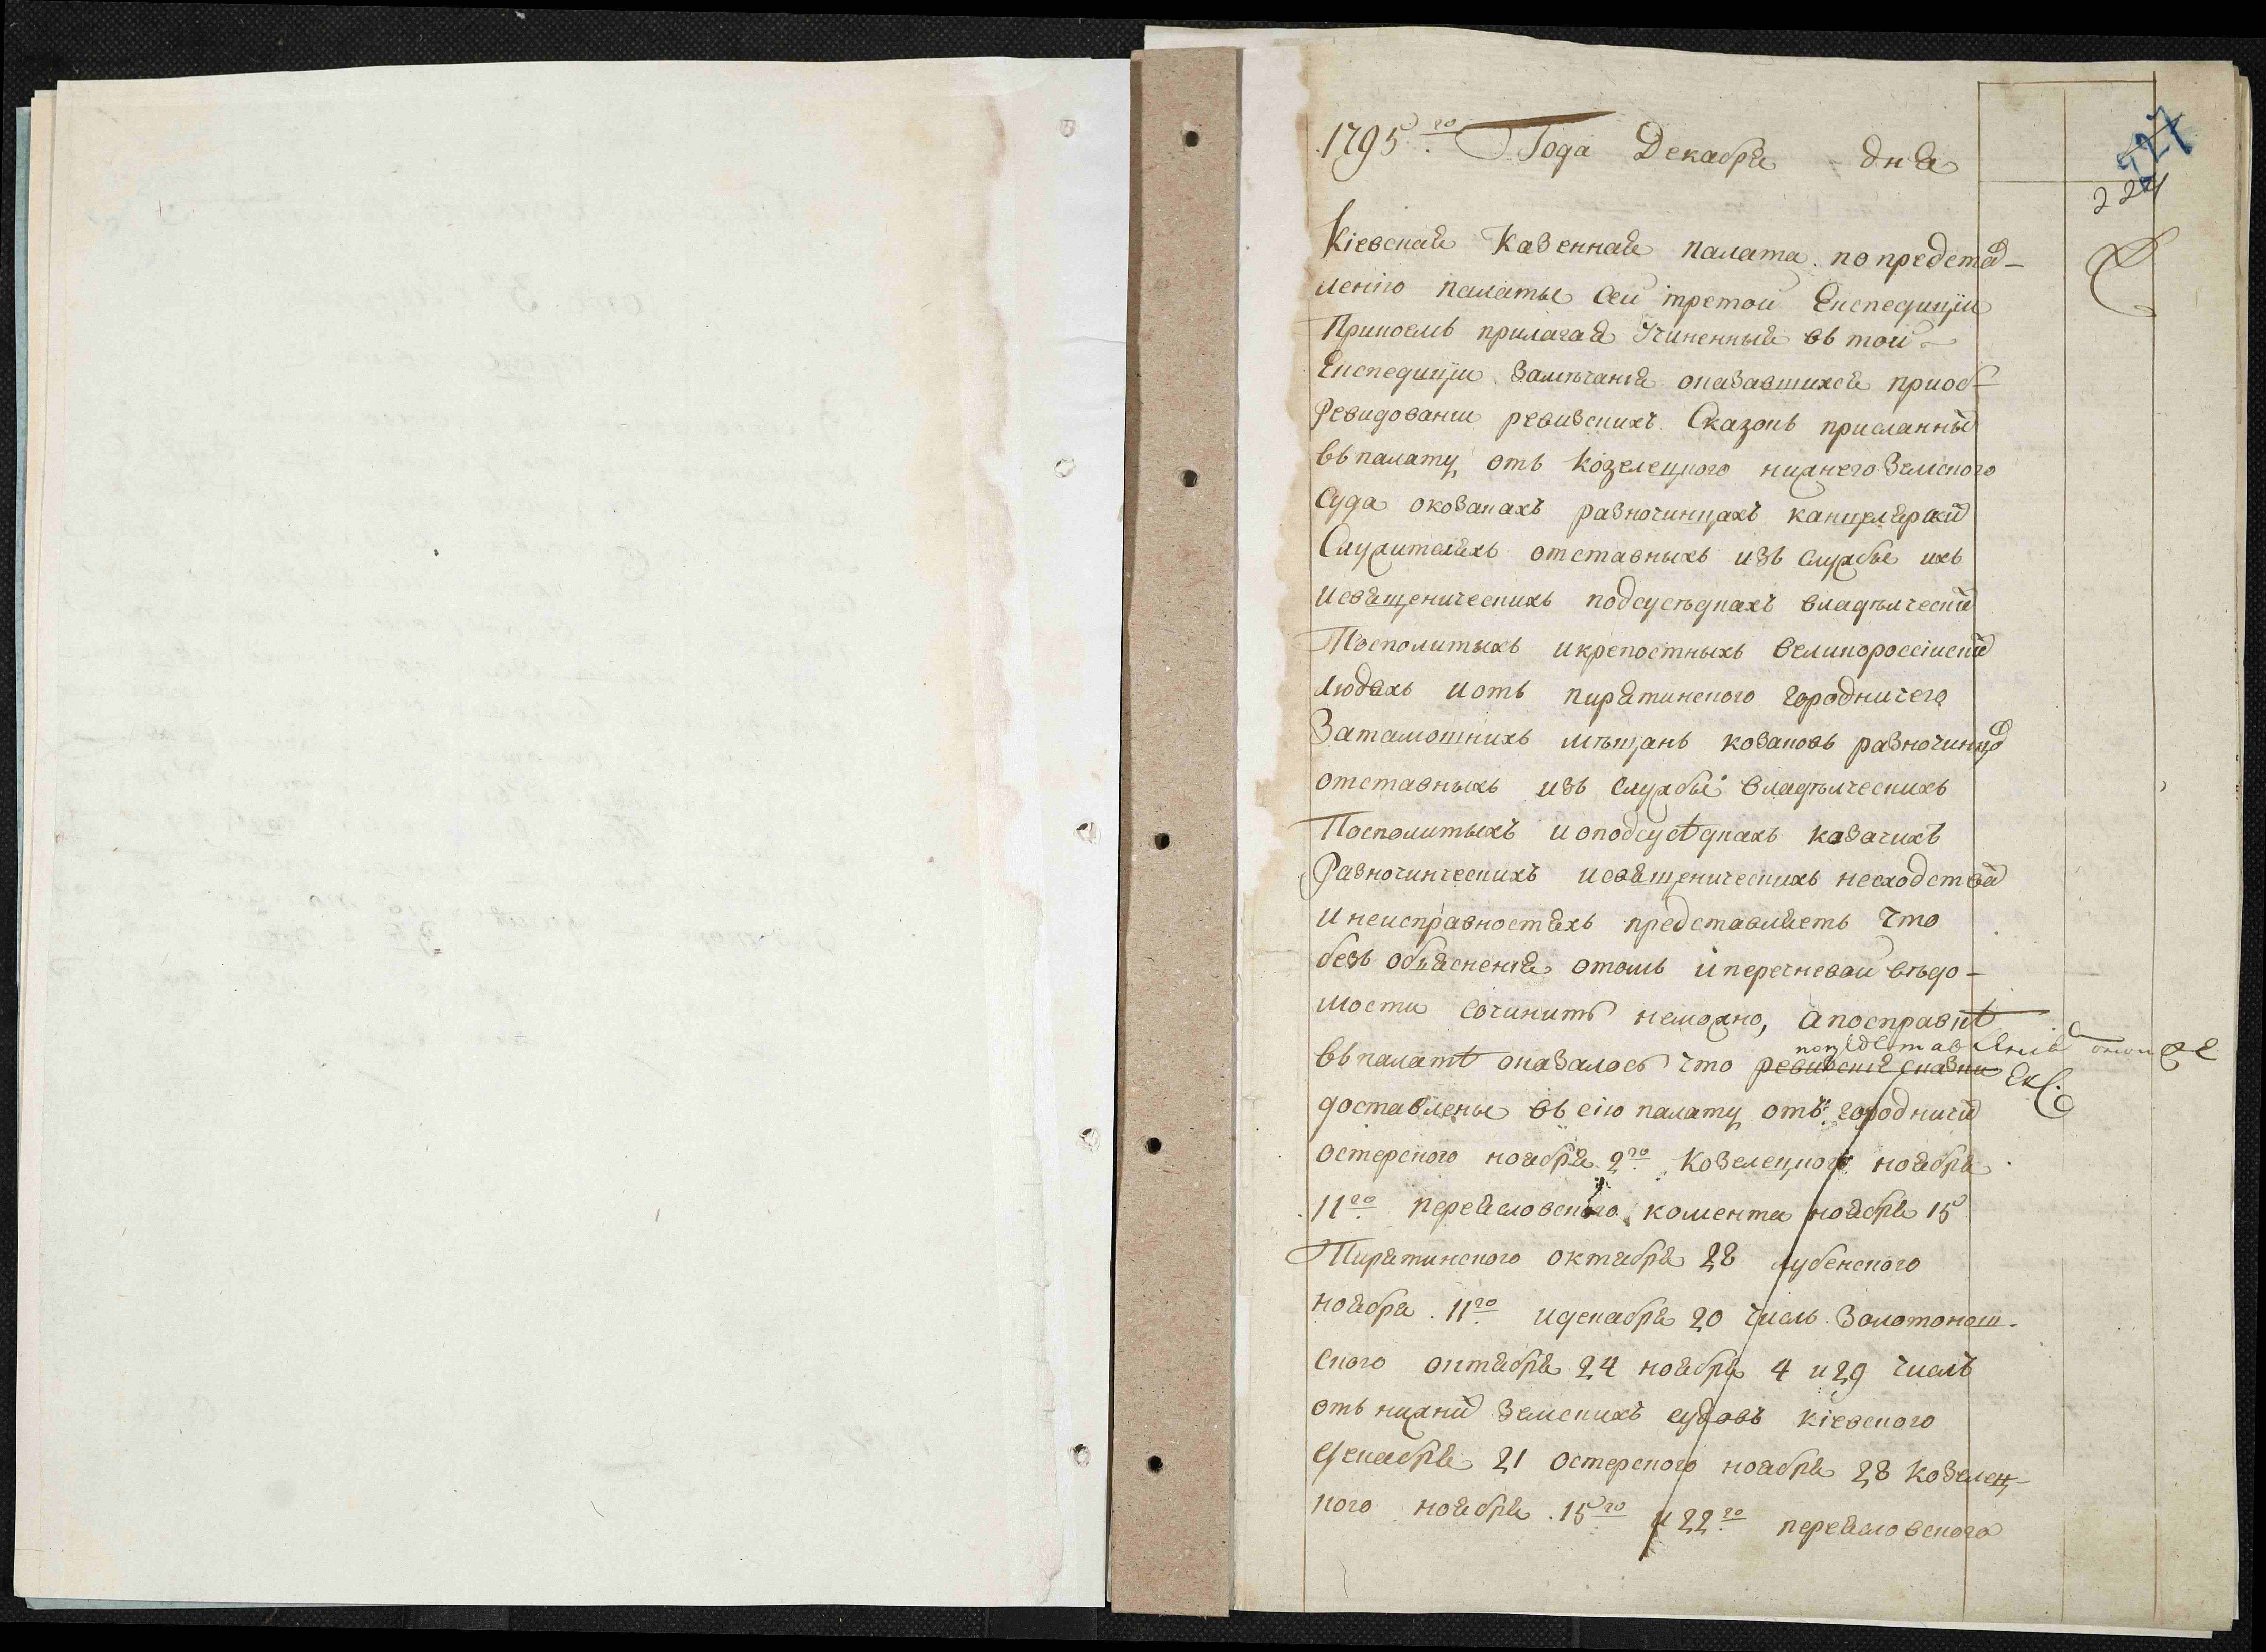 227
224
1795го Года Декабря дня
Кіевская Казенная палата по представ-
ленію палаты сей третой Експедиціи
Коею прилагая Учиненныя въ той
Експедиціи замѣчанія оказавшихся приоб-
Ревидованіи ревизскихъ Сказокъ присланных
въ палату отъ Козелецкого нижнего земского
Суда окозакахъ разночинцахъ канцелярских
Служителяхъ отставныхъ изъ службы ихъ
исвященическихъ подсусѣдкахъ владѣлческих
Посполитыхъ икрепостныхъ великороссіиских
людяхъ иотъ пирятинского городничего
Затамошнихъ мѣщанъ козаковъ разночинцов
отставныхъ изъ службы владѣлческихъ
Посполитыхъ иоподсусѣдкахъ казачихъ
Разночинческихъ исвященическихъ несходствах
инеисправностяхъ представляетъ что
безъ объясненія отомъ иперечневой вѣдо-
мости сочинить неможно, апосправкѣ
въ палатѣ оказалось что ревизскія сказки
доставлены въ сію палату отъ городничих
остерского ноября 2го Козелецкого ноября
11го переясловского комента ноября 15
Пирятинского октября 28 лубенского
ноября 11го идекабря 20 числъ Золотонош-
ского октября 24 ноября 4 и 29 числъ
отъ нижних земскихъ судовъ кіевского
декабря 21 остерского ноября 28 Козелец-
кого ноября 15го и 22го переясловского